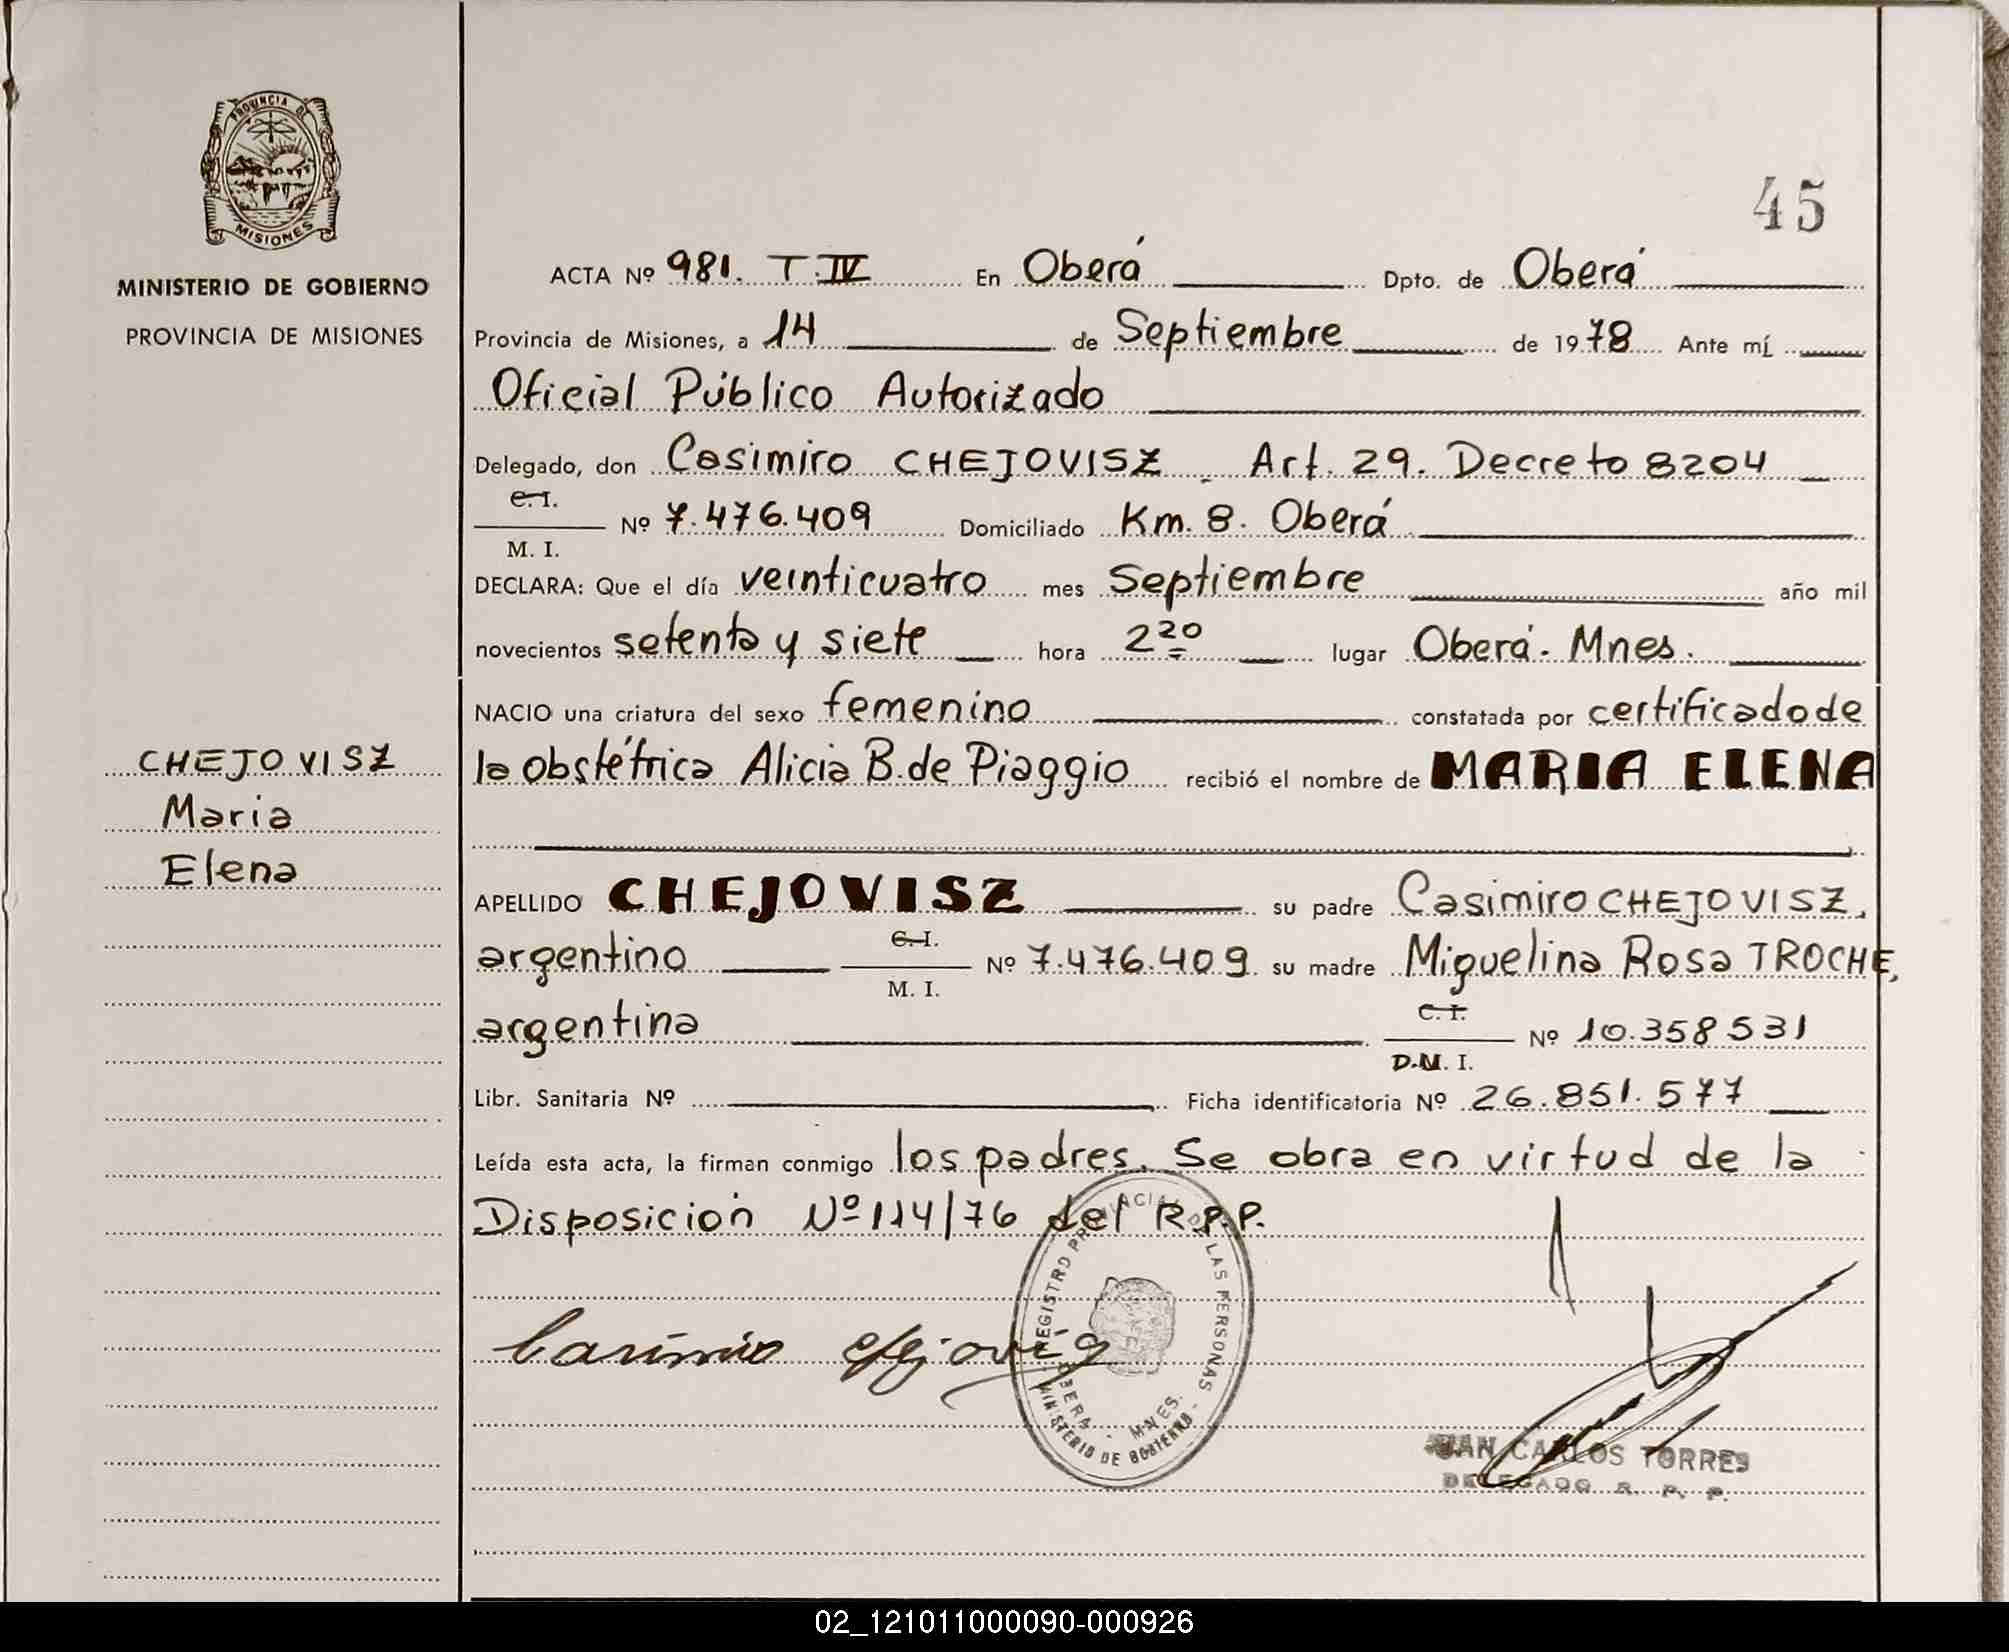 PROVINCIA DE
MISIONES
MINISTERIO DE GOBIERNO
PROVINCIA DE MISIONES
CHEJOVISZ
Maria
Elena
45
ACTA Nº 981. T.IV En Oberá Dpto. de Oberá
Provincia de Misiones, a 14 de Septiembre de 1978 Ante mí
Oficial Público Autorizado
Delegado, don Casimiro CHEJOVISZ. Art. 29. Decreto 8204
C.I.
M. I. Nº 7.476.409 Domiciliado Km. 8. Oberá
DECLARA: Que el día veinticuatro mes Septiembre año mil
novecientos setenta y siete hora 2 20 lugar Oberá. Mnes.
NACIO una criatura del sexo femenino constatada por certificado de
la obstétrica Alicia B. de Piaggio recibió el nombre de MARIA ELENA
APELLIDO CHEJOVISZ su padre Casimiro CHEJOVISZ,
argentino C.I. M. I. Nº 7.476.409 su madre Miguelina Rosa TROCHE,
argentina C. I. D.M. I. Nº 10.358531
Libr. Sanitaria Nº Ficha identificatoria Nº 26.851.577
Leída esta acta, la firman conmigo los padres. Se obra en virtud de la
Disposición Nº 114/76 del R.P.P.
REGISTRO PROVINCIAL DE LAS PERSONAS
OBERA - MNES.
MINISTERIO DE GOBIERNO
JUAN CARLOS TORRES
DELEGADO R. P. P.
02_121011000090-000926